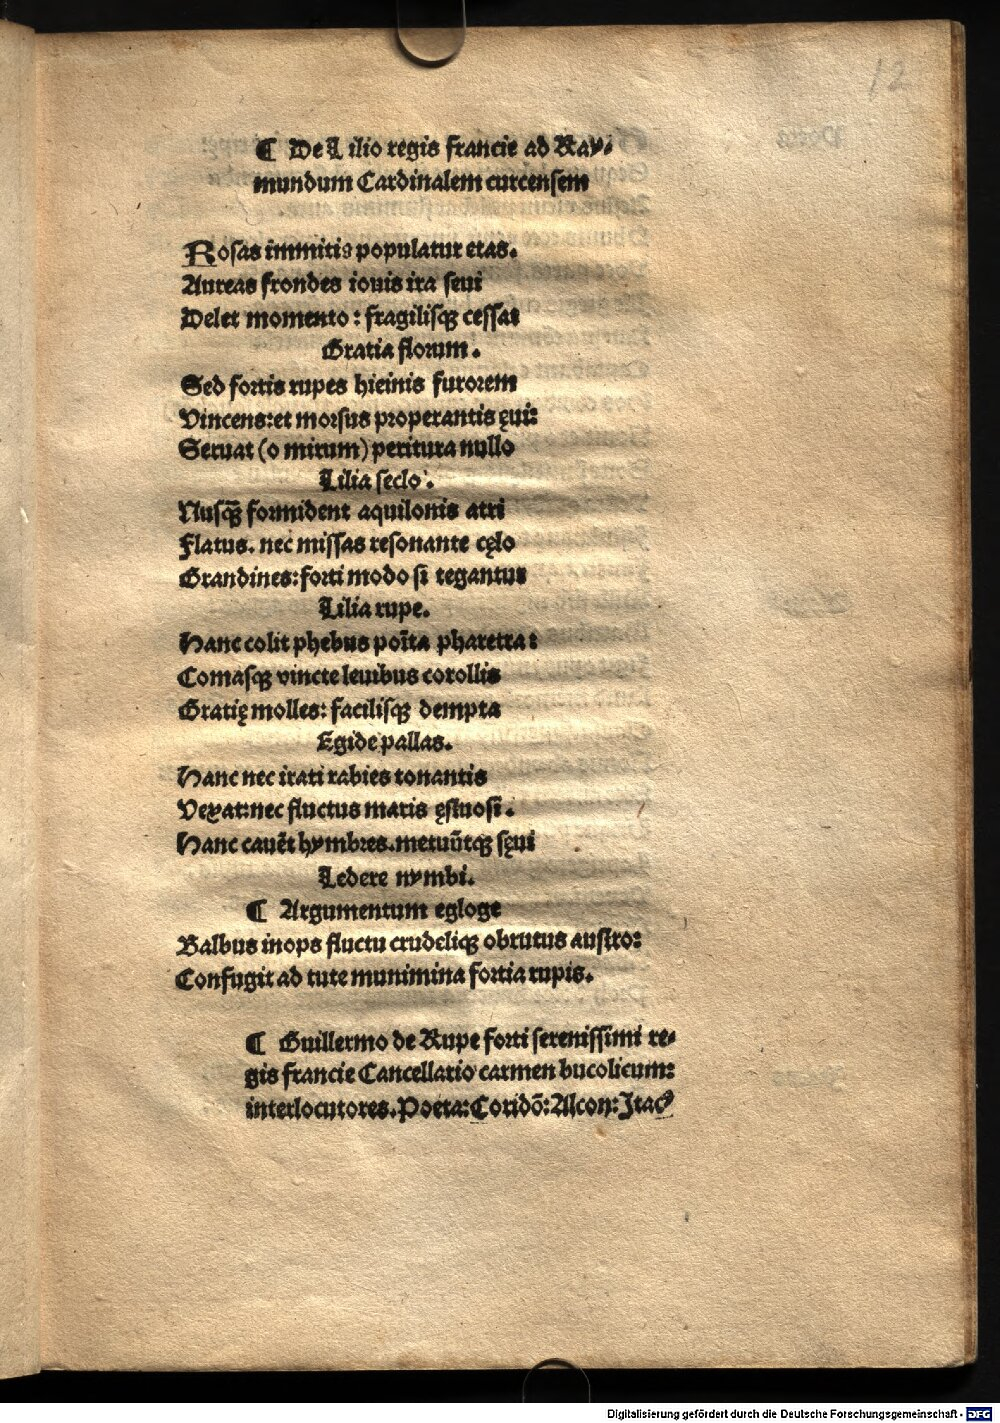 12
¶ De Lilio regis francie ad Ray-
mundum Cardinalem curcensem
Rosas immitis populatur etas.
Aureas frondes iouis ira seui
Delet momento: fragilisqꝫ cessat
Gratia florum.
Sed fortis rupes hieinis furorem
Vincens: et morsus properantis ęui:
Seruat (o mirum) peritura nullo
Lilia seclo.
Nusq̄ꝫ formident aquilonis atri
Flatus. nec missas resonante cęlo
Grandines: forti modo si tegantur
Lilia rupe.
Hanc colit phebus poīta pharetra:
Comasqꝫ vincte leuibus corollis
Gratię molles: facilisqꝫ dempta
Egide pallas.
Hanc nec irati rabies tonantis
Vexat: nec fluctus maris ęstuosi.
Hanc cauēt hymbres. metuūtqꝫ sęui
Ledere nymbi.
¶ Argumentum egloge
Balbus inops fluctu crudeliqꝫ obrutus austro:
Confugit ad tute munimina fortia rupis.
¶ Guillermo de Rupe forti serenissimi re-
gis francie Cancellario carmen bucolicum:
interlocutores. Poeta: Coridō: Alcon: Itacꝰ
Digitalisierung gefördert durch die Deutsche Forschungsgemeinschaft - DFG